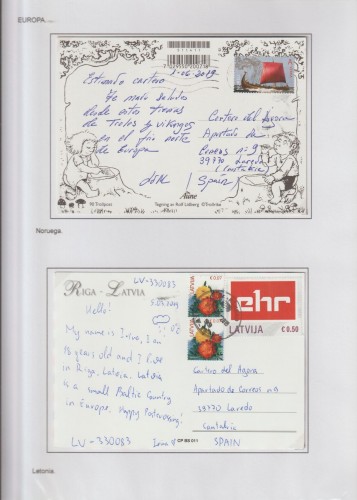 EUROPA
1-06-2019
Estimado cartero
Te mando saludos
desde estas tierras
de Trolls y vikingos
en el frio norte
de Europa
Apartado de
Correos nº 9
39770
Spain
Noruega.
RIGA - LATVIA
LV-330083
Hello!
My name is Irina, I am
years old and I live
in Riga, Latvia. Latvia
is a small Baltic Country
in Europe. Happy Postcrossing!
LV-330083
CP BS 011
LATVIJA
€ 0.07
LATVIJA
ehr
LATVIJA
€ 0.50
Centro del Agora
Apartado de Correos nº9
39770 Laredo
Cantabria
SPAIN
Letonia.